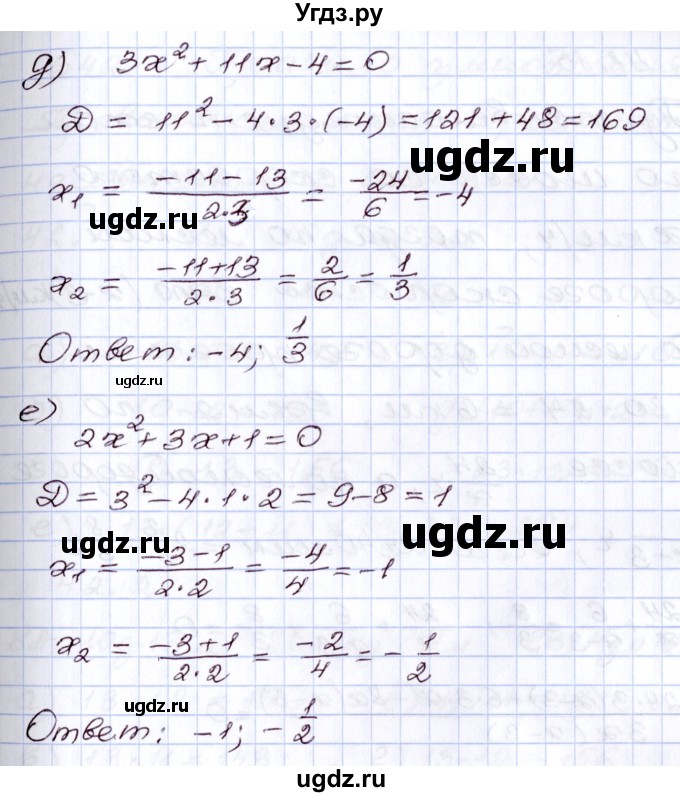 Угдз.ру
д) 3x² + 11x - 4 = 0
D = 11² - 4·3·(-4) = 121 + 48 = 169
ugdz.ru
x₁ = (-11-13)/(2·3) = -24/6 = -4
ugdz.ru
x₂ = (-11+13)/(2·3) = 2/6 = 1/3
Ответ: -4; 1/3
ugdz.ru
е)
2x² + 3x + 1 = 0
D = 3² - 4·1·2 = 9 - 8 = 1
ugdz.ru ugdz.ru
x₁ = (-3-1)/(2·2) = -4/4 = -1
x₂ = (-3+1)/(2·2) = -2/4 = -1/2
ugdz.ru
Ответ: -1; -1/2
ugdz.ru